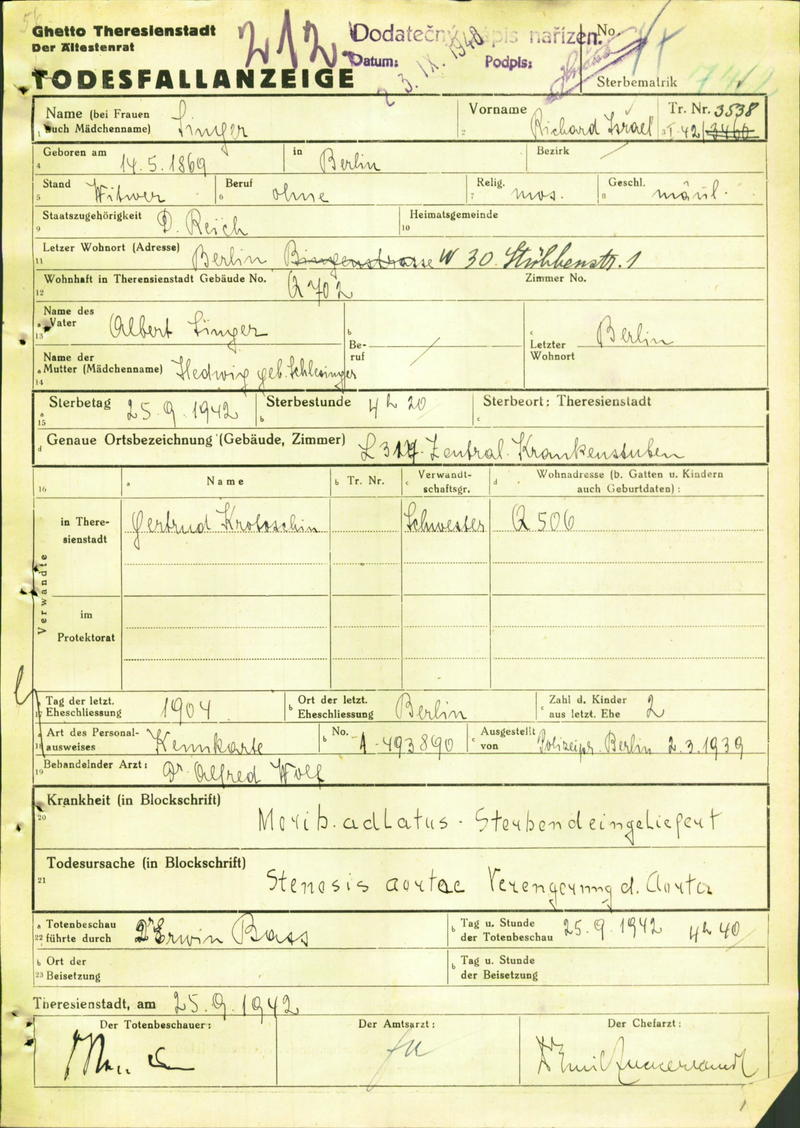 Ghetto Theresienstadt
Der Ältestenrat
212.
Dodatečný zápis nařízen.
Datum: 23. IX. 1948 Podpis:
No.
Sterbematrik
TODESFALLANZEIGE
Name (bei Frauen auch Mädchenname) Singer
Vorname Richard Israel
Tr. Nr. 3538
I-42/3460
Geboren am 14.5.1869 in Berlin Bezirk /
Stand Witwer Beruf ohne Relig. mos. Geschl. mänl.
Staatszugehörigkeit D. Reich Heimatsgemeinde
Letzer Wohnort (Adresse) Berlin W 30. Stübbenstr. 1
Wohnhaft in Therensienstadt Gebäude No. Q 702 Zimmer No.
Name des Vater Albert Singer
Be-ruf /
Letzter Wohnort Berlin
Name der Mutter (Mädchenname) Hedwig geb. Schlesinger
Sterbetag 25.9.1942 Sterbestunde 4h 20 Sterbeort: Theresienstadt
Genaue Ortsbezeichnung (Gebäude, Zimmer) Zentral-Krankenstuben
Name Tr. Nr. Verwandt-schaftsgr. Wohnadresse (b. Gatten u. Kindern auch Geburtdaten):
Verwandte
in There-sienstadt Gertrud Krotoschin Schwester Q 506
im Protektorat
Tag der letzt. Eheschliessung 1904 Ort der letzt. Eheschliessung Berlin Zahl d. Kinder aus letzt. Ehe 2
Art des Personal-ausweises Kennkarte No. A-493890 Ausgestellt von Polizeipr. Berlin 2.3.1939
Behandelnder Arzt: Dr. Alfred Wolf
Krankheit (in Blockschrift) Morib. adLatus - Sterbend eingeliefert
Todesursache (in Blockschrift) Stenosis aortae Verengerung d. Aorta
Totenbeschau führte durch Dr Erwin Bass Tag u. Stunde der Totenbeschau 25.9.1942 4h 40
Ort der Beisetzung Tag u. Stunde der Beisetzung
Theresienstadt, am 25.9.1942
Der Totenbeschauer: Der Amtsarzt: Der Chefarzt:
Dr Emil